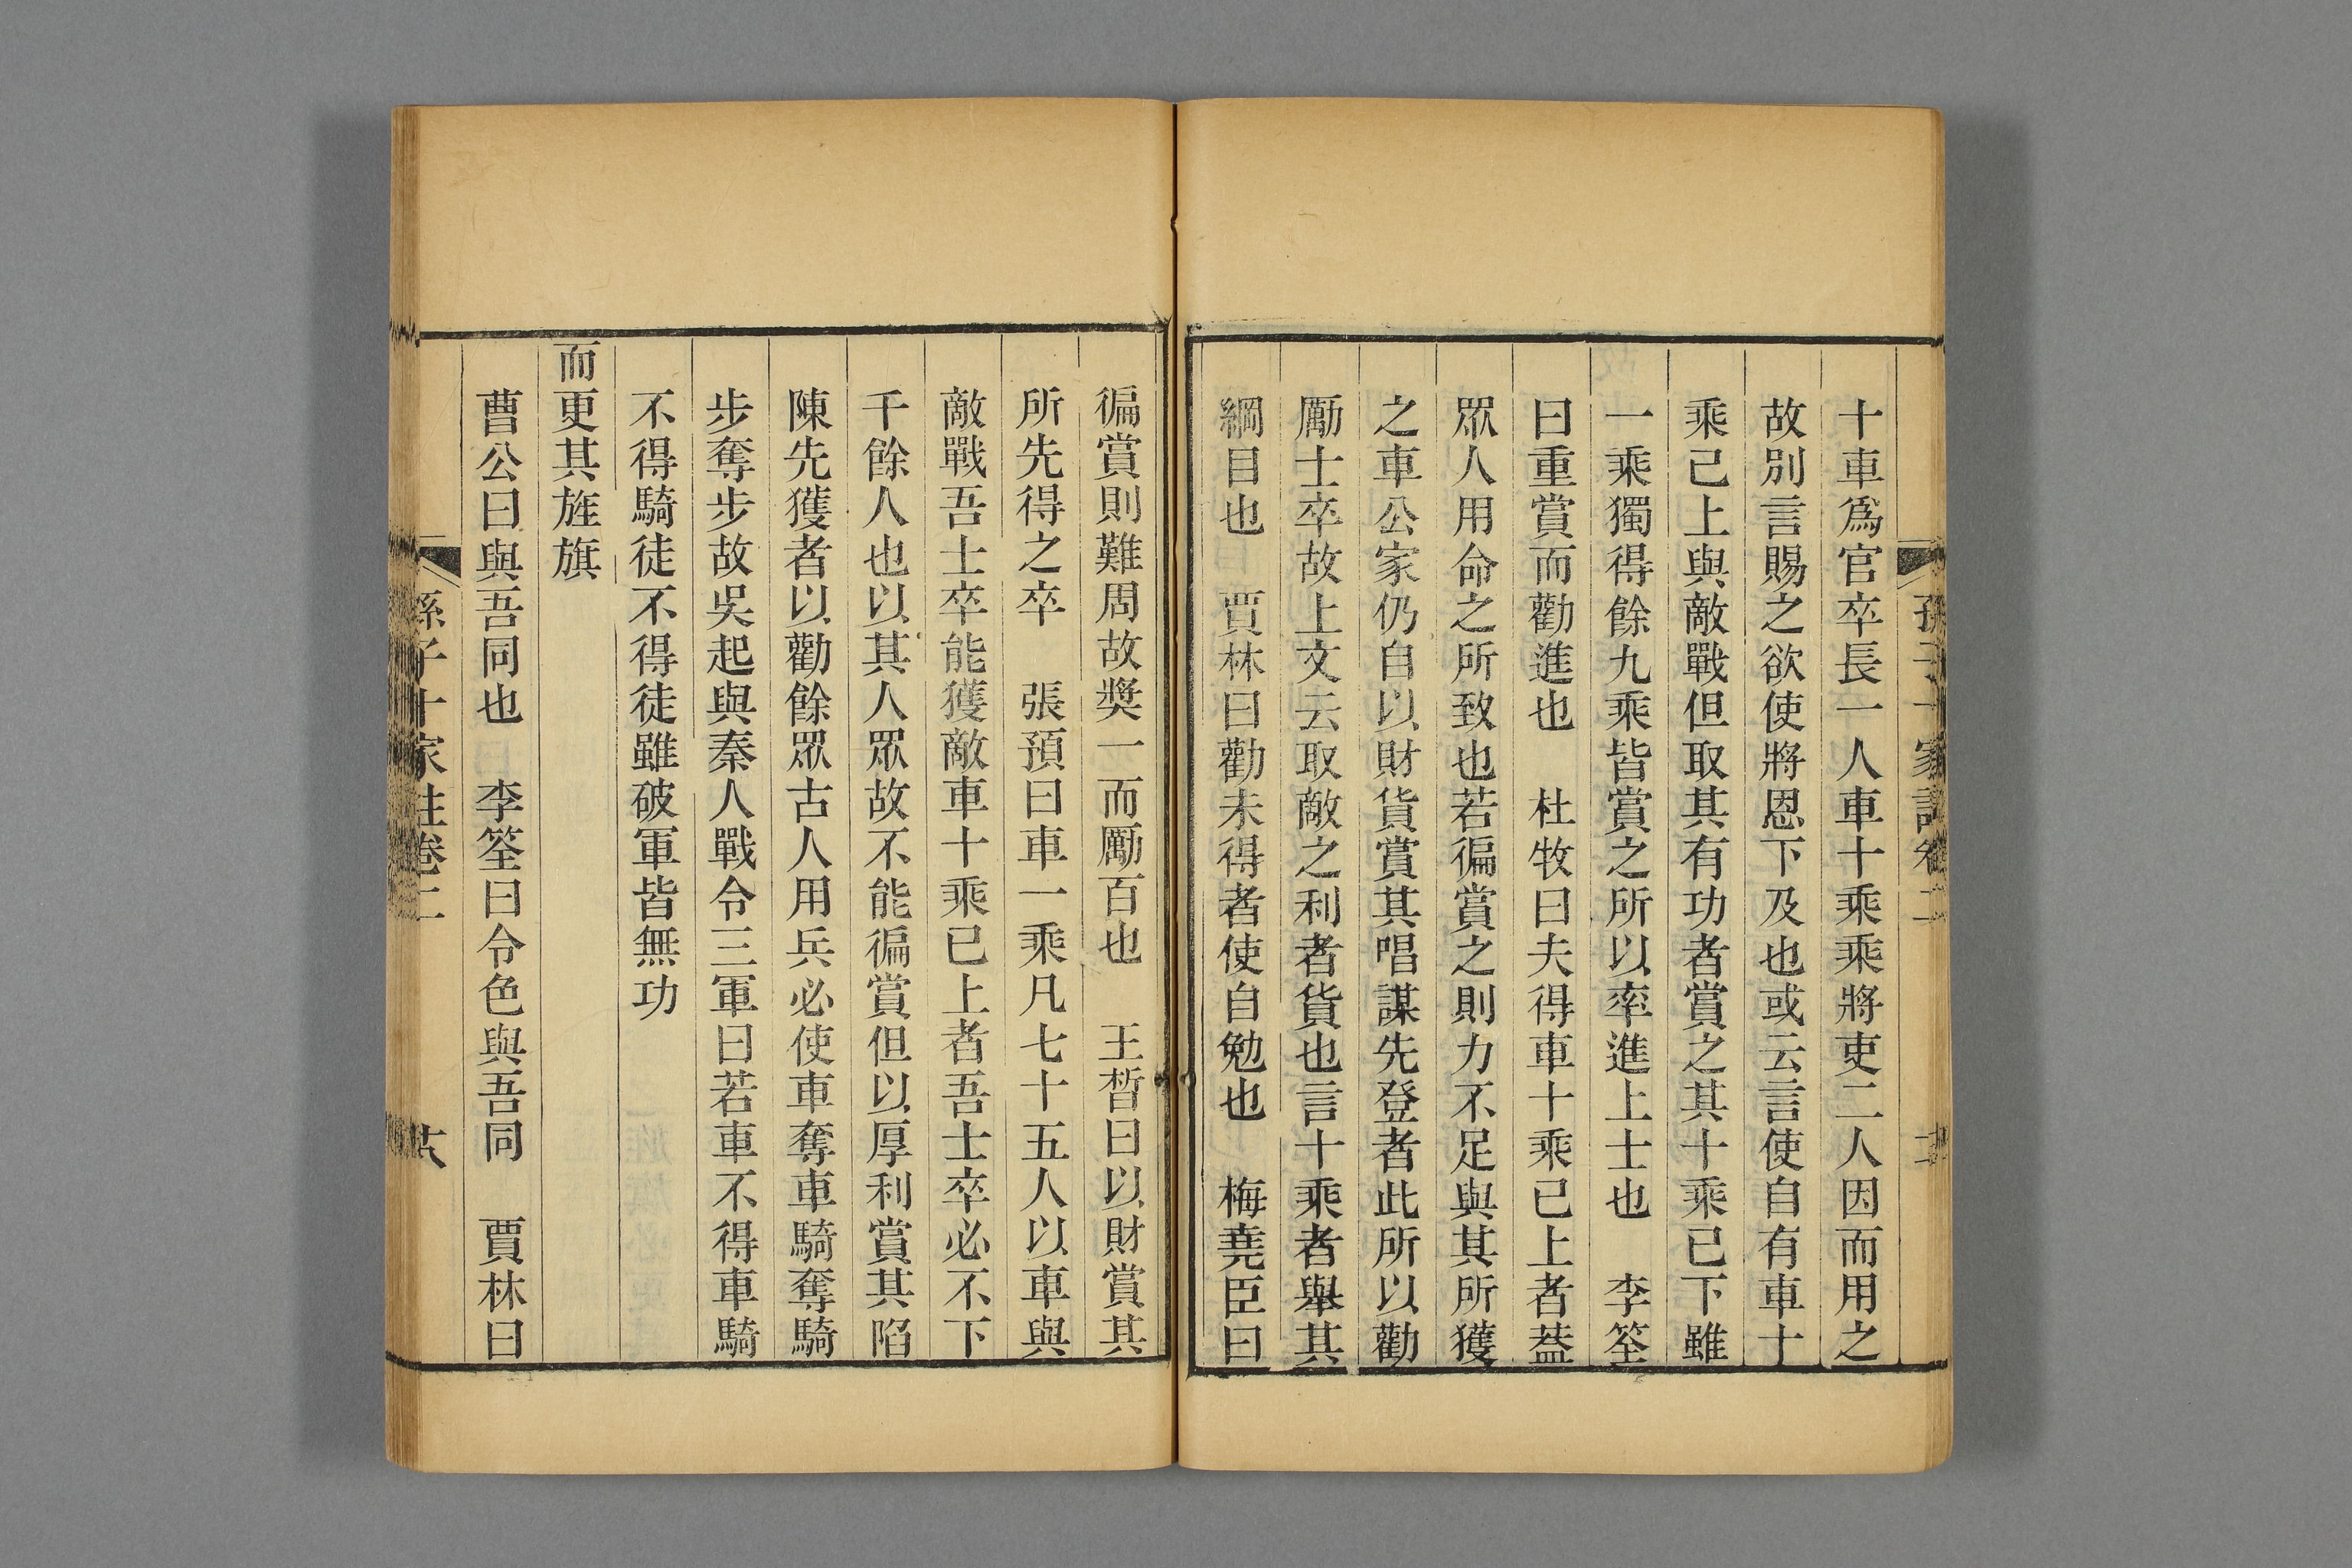 十車爲官卒長一人車十乘乘將吏二人因而用之
故別言賜之欲使將恩下及也或云言使自有車十
乘已上與敵戰但取其有功者賞之其十乘已下雖
一乘獨得餘九乘皆賞之所以率進上士也　李筌
曰重賞而勸進也　杜牧曰夫得車十乘已上者蓋
眾人用命之所致也若徧賞之則力不足與其所獲
之車公家仍自以財貨賞其唱謀先登者此所以勸
勵士卒故上文云取敵之利者貨也言十乘者舉其
綱目也　賈林曰勸未得者使自勉也　梅堯臣曰
徧賞則難周故獎一而勵百也　王晳曰以財賞其
所先得之卒　張預曰車一乘凡七十五人以車與
敵戰吾士卒能獲敵車十乘已上者吾士卒必不下
千餘人也以其人眾故不能徧賞但以厚利賞其陷
陳先獲者以勸餘眾古人用兵必使車奪車騎奪騎
步奪步故吳起與秦人戰令三軍曰若車不得車騎
不得騎徒不得徒雖破軍皆無功
而更其旌旗
曹公曰與吾同也　李筌曰令色與吾同　賈林曰
孫子十家注卷二